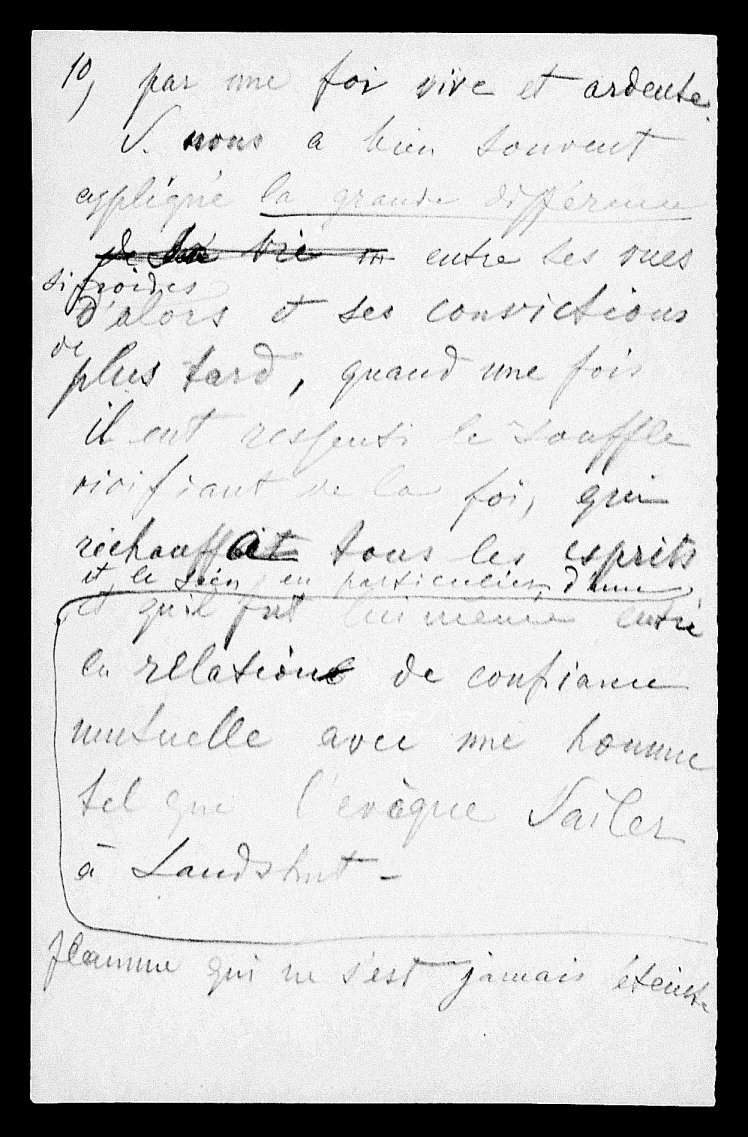 10, par une foi vive et ardente.
S. nous a bien souvent
expliqué la grande différence
de la vie en entre ses vues
si froides
d'alors et ses convictions
de
plus tard, quand une fois
il eut ressenti le souffle
vivifiant de la foi, qui
réchauffait tous les esprits
et le sien, en particulier, d'une
et qu'il fut lui même entré
en relations de confiance
mutuelle avec une homme
tel que l'evèque Sailer
à Landshut -
flamme qui ne s'est jamais éteinte